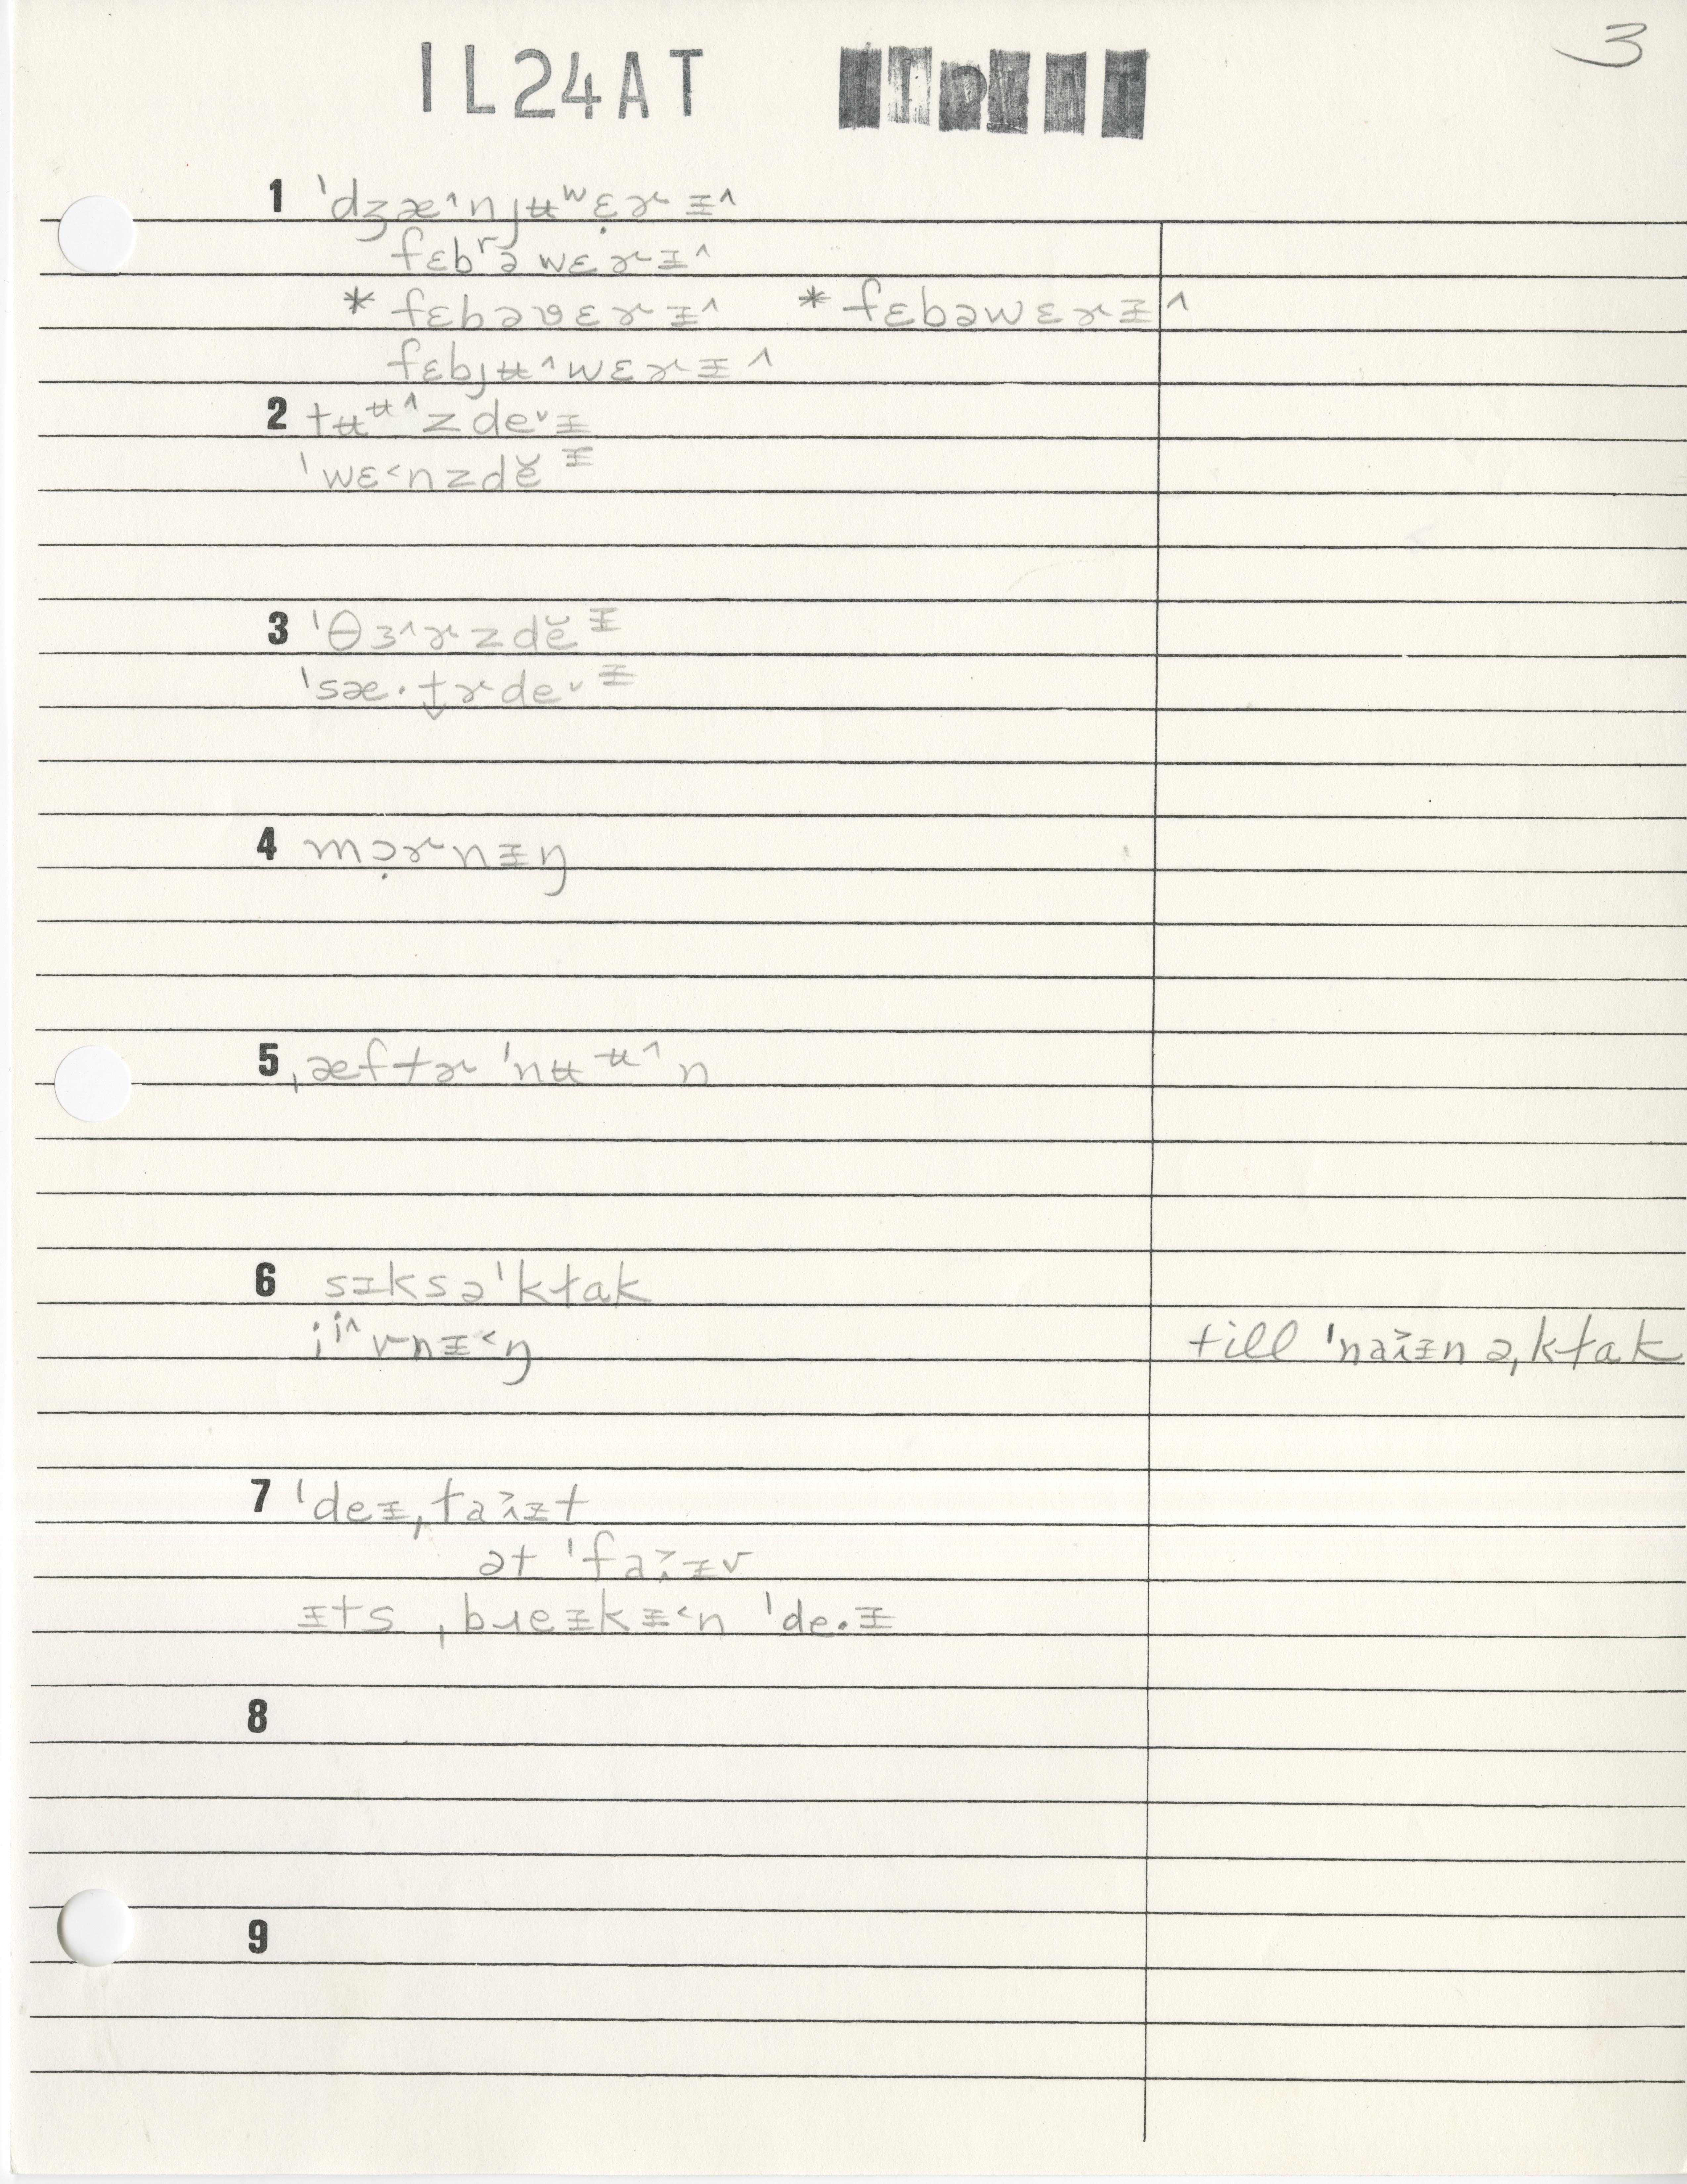 3
IL24AT
1 ˈdʒæ˄njʉʷɛ̣ɚᵻ˄
fɛbʳəwɛɚᵻ˄
* fɛbəʋɛɚᵻ˄ * fɛbəwɛɚᵻ˄
fɛbjʉ˄wɛɚᵻ˄
2 tʉᶶ˄zde˅ᵻ
ˈwɛ˂nzdĕᵻ
3 ˈθɜ˄ɚzdĕᵻ
ˈsæ·t̬ɚde˅ᵻ
4 mɔ̣ɚnᵻŋ
5 ˌæftɚ ˈnʉᶶ˄n
6 sɪksəˈkɫak
iⁱ˄vnᵻ˂ŋ
till ˈnaᵻn əˌkɫak
7 ˈdeᵻˌɫaᵻt
ət ˈfaᵻv
ᵻts ˌbɹeᵻkᵻ˂n ˈde·ᵻ
8
9